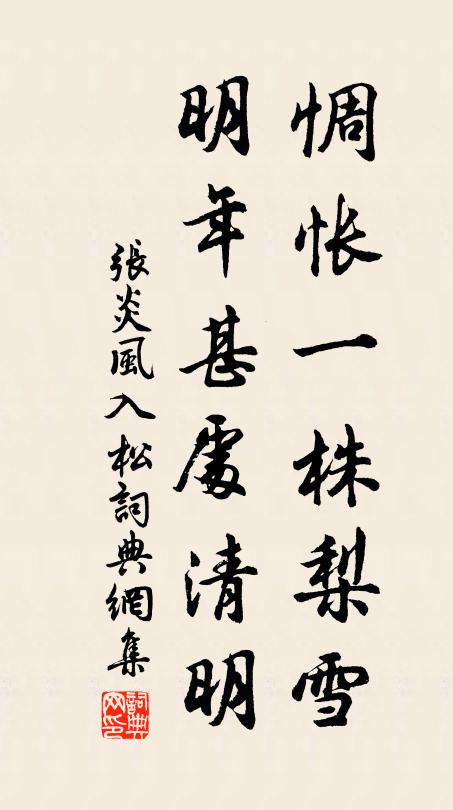 惆怅一株梨雪
明年甚處清明
張炎風入松詞典網集
詞典
网印